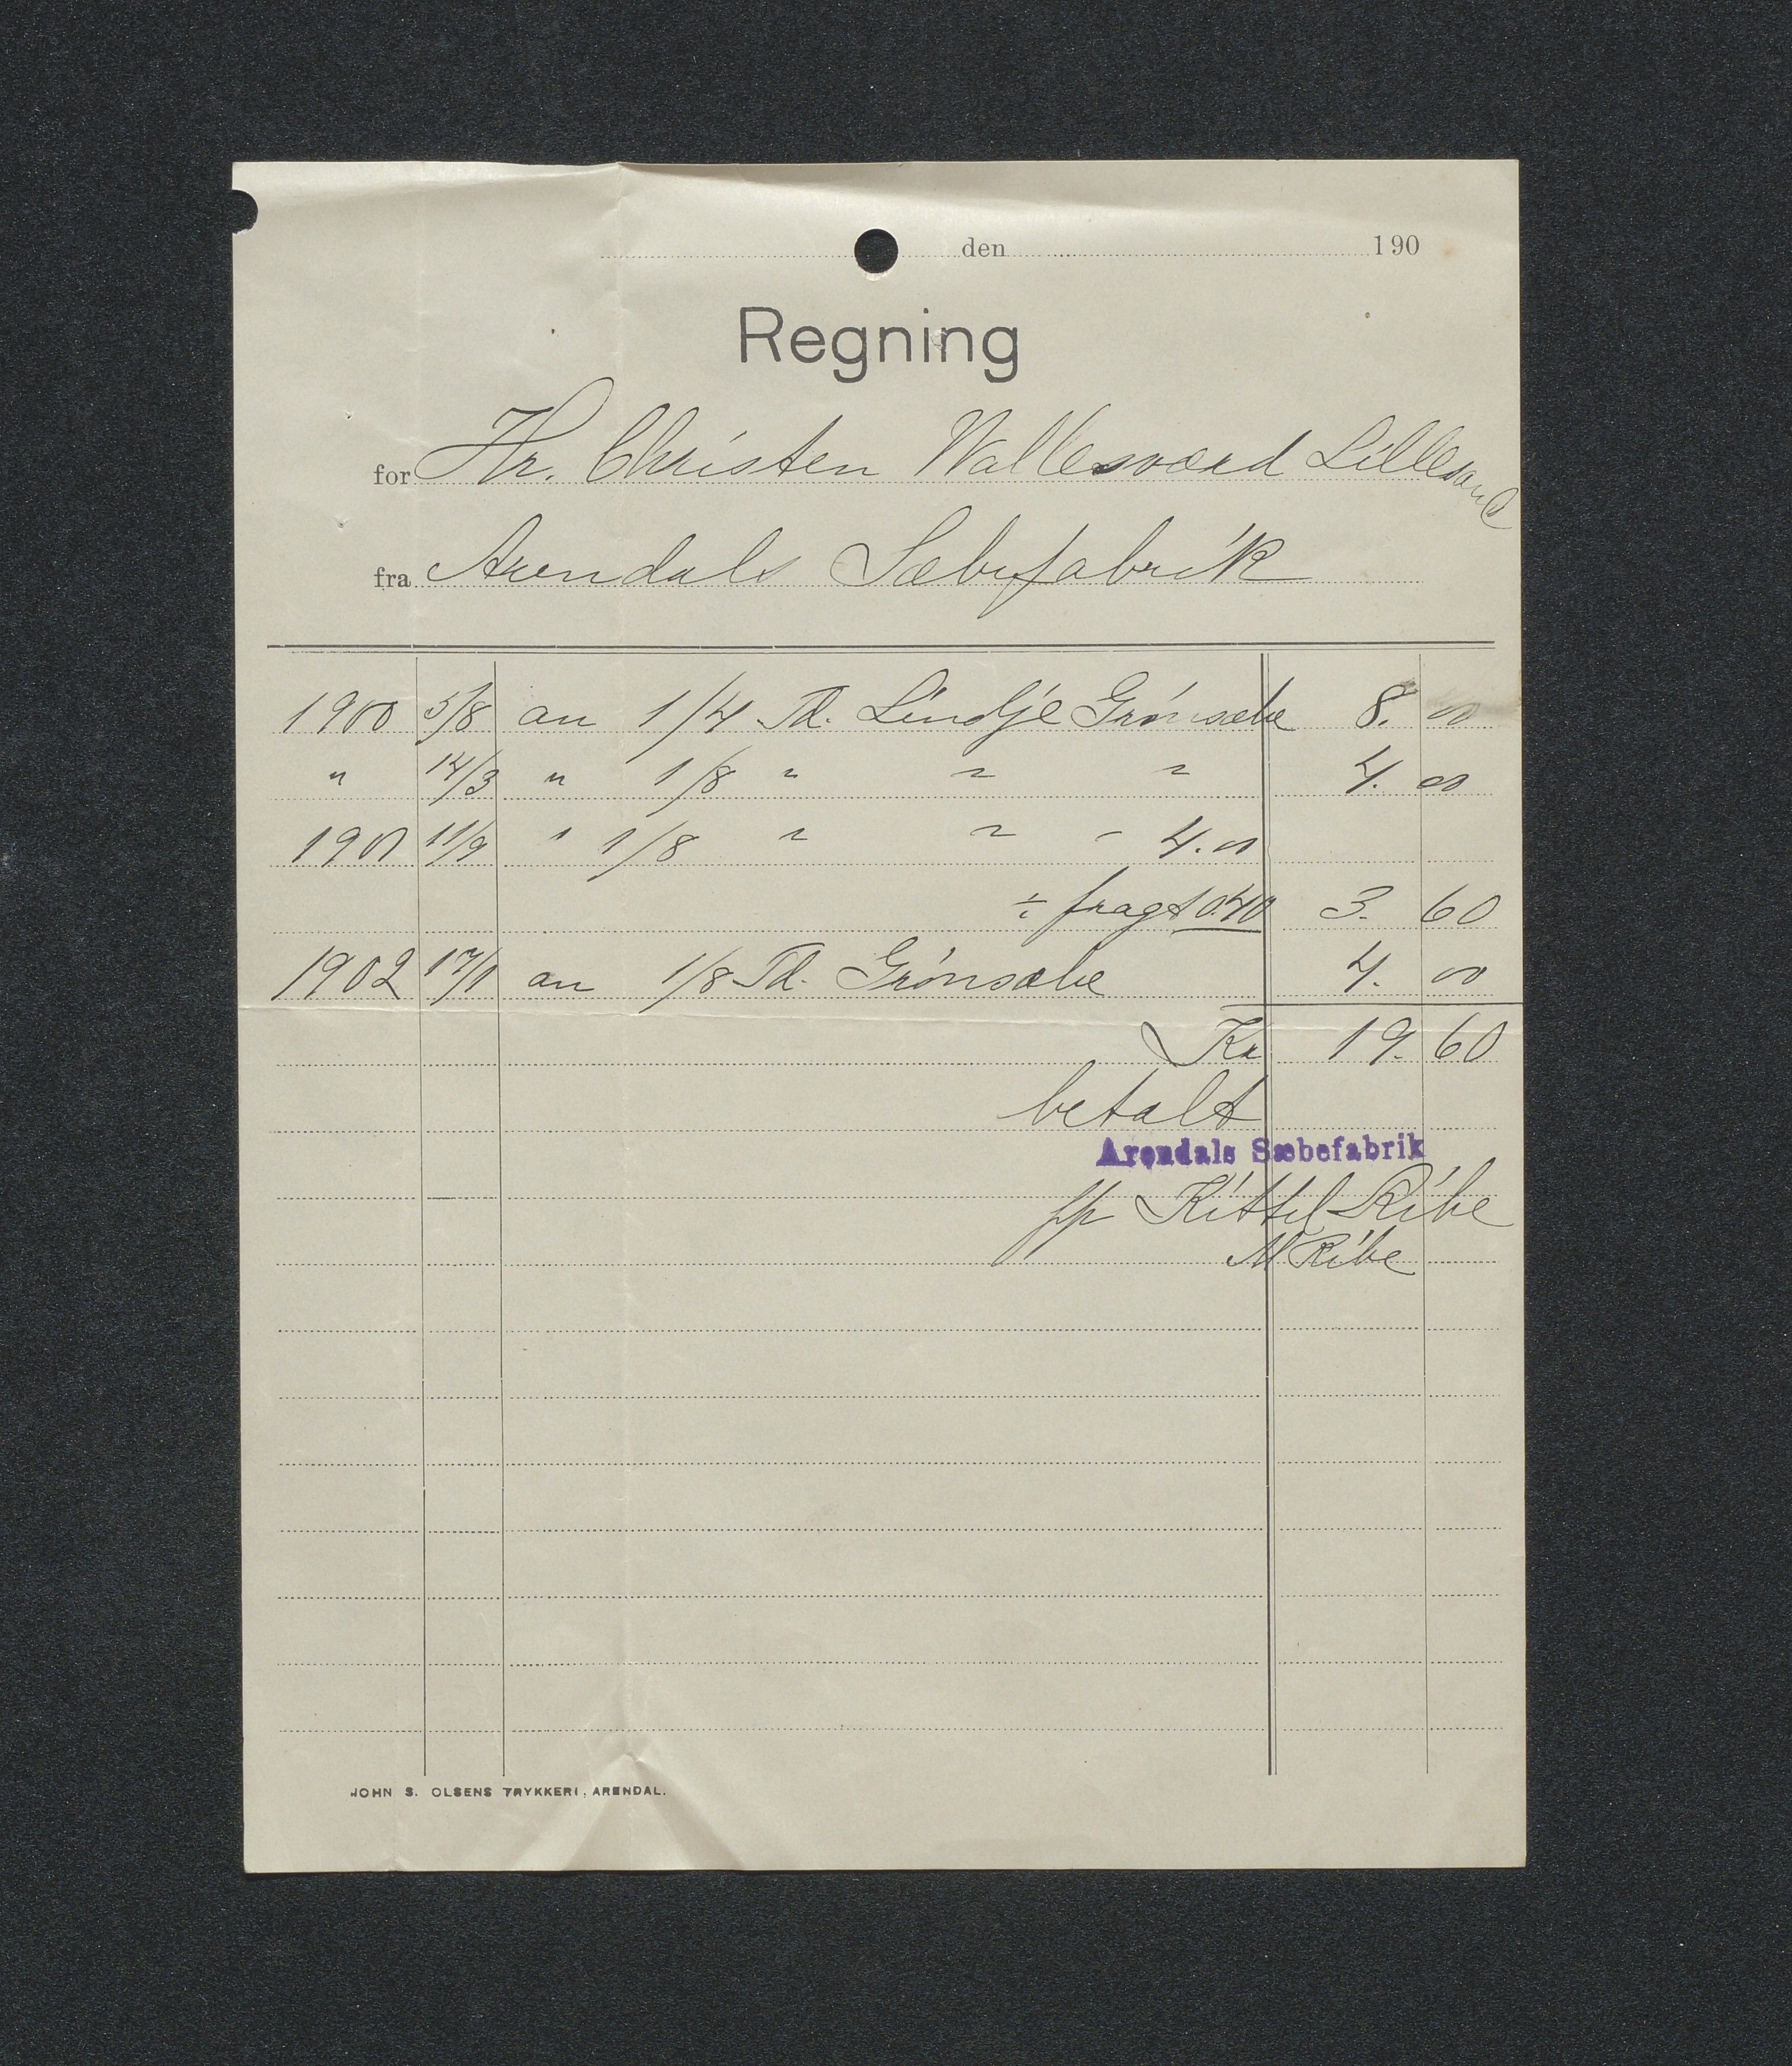 den 190
Regning
for Hr. Christen Vallesværd Lillesand
fra Arendals Sæbefabrik
1900 5/8 an 1/4 Td. Linolje Grønsæbe 8. 00
" 14/3 " 1/8 " " " 4. 00
1901 11/9 " 1/8 " " " 4.00
÷ fragt 0.40 3. 60
1902 17/1 an 1/8 Td. Grønsæbe 4. 00
Kr 19. 60
betalt
Arendals Sæbefabrik
pp Kittel Ribe
M Ribe
JOHN S. OLSENS TRYKKERI, ARENDAL.